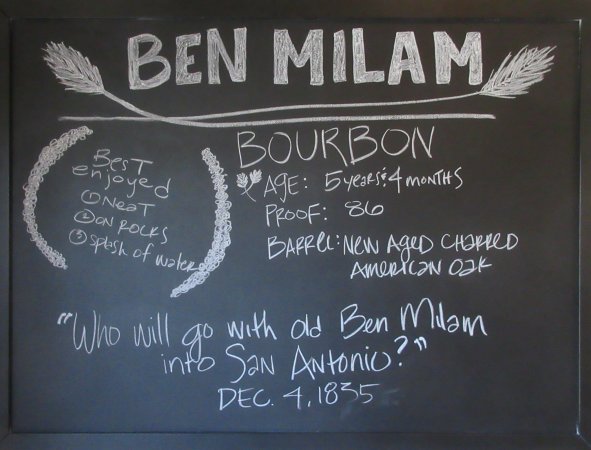 BEN MILAM
BOURBON
Best
enjoyed
① Neat
② on Rocks
③ splash of water
Age: 5 years & 4 months
Proof: 86
Barrel: New Aged Charred
American Oak
"Who will go with old Ben Milam
into San Antonio?"
Dec. 4, 1835